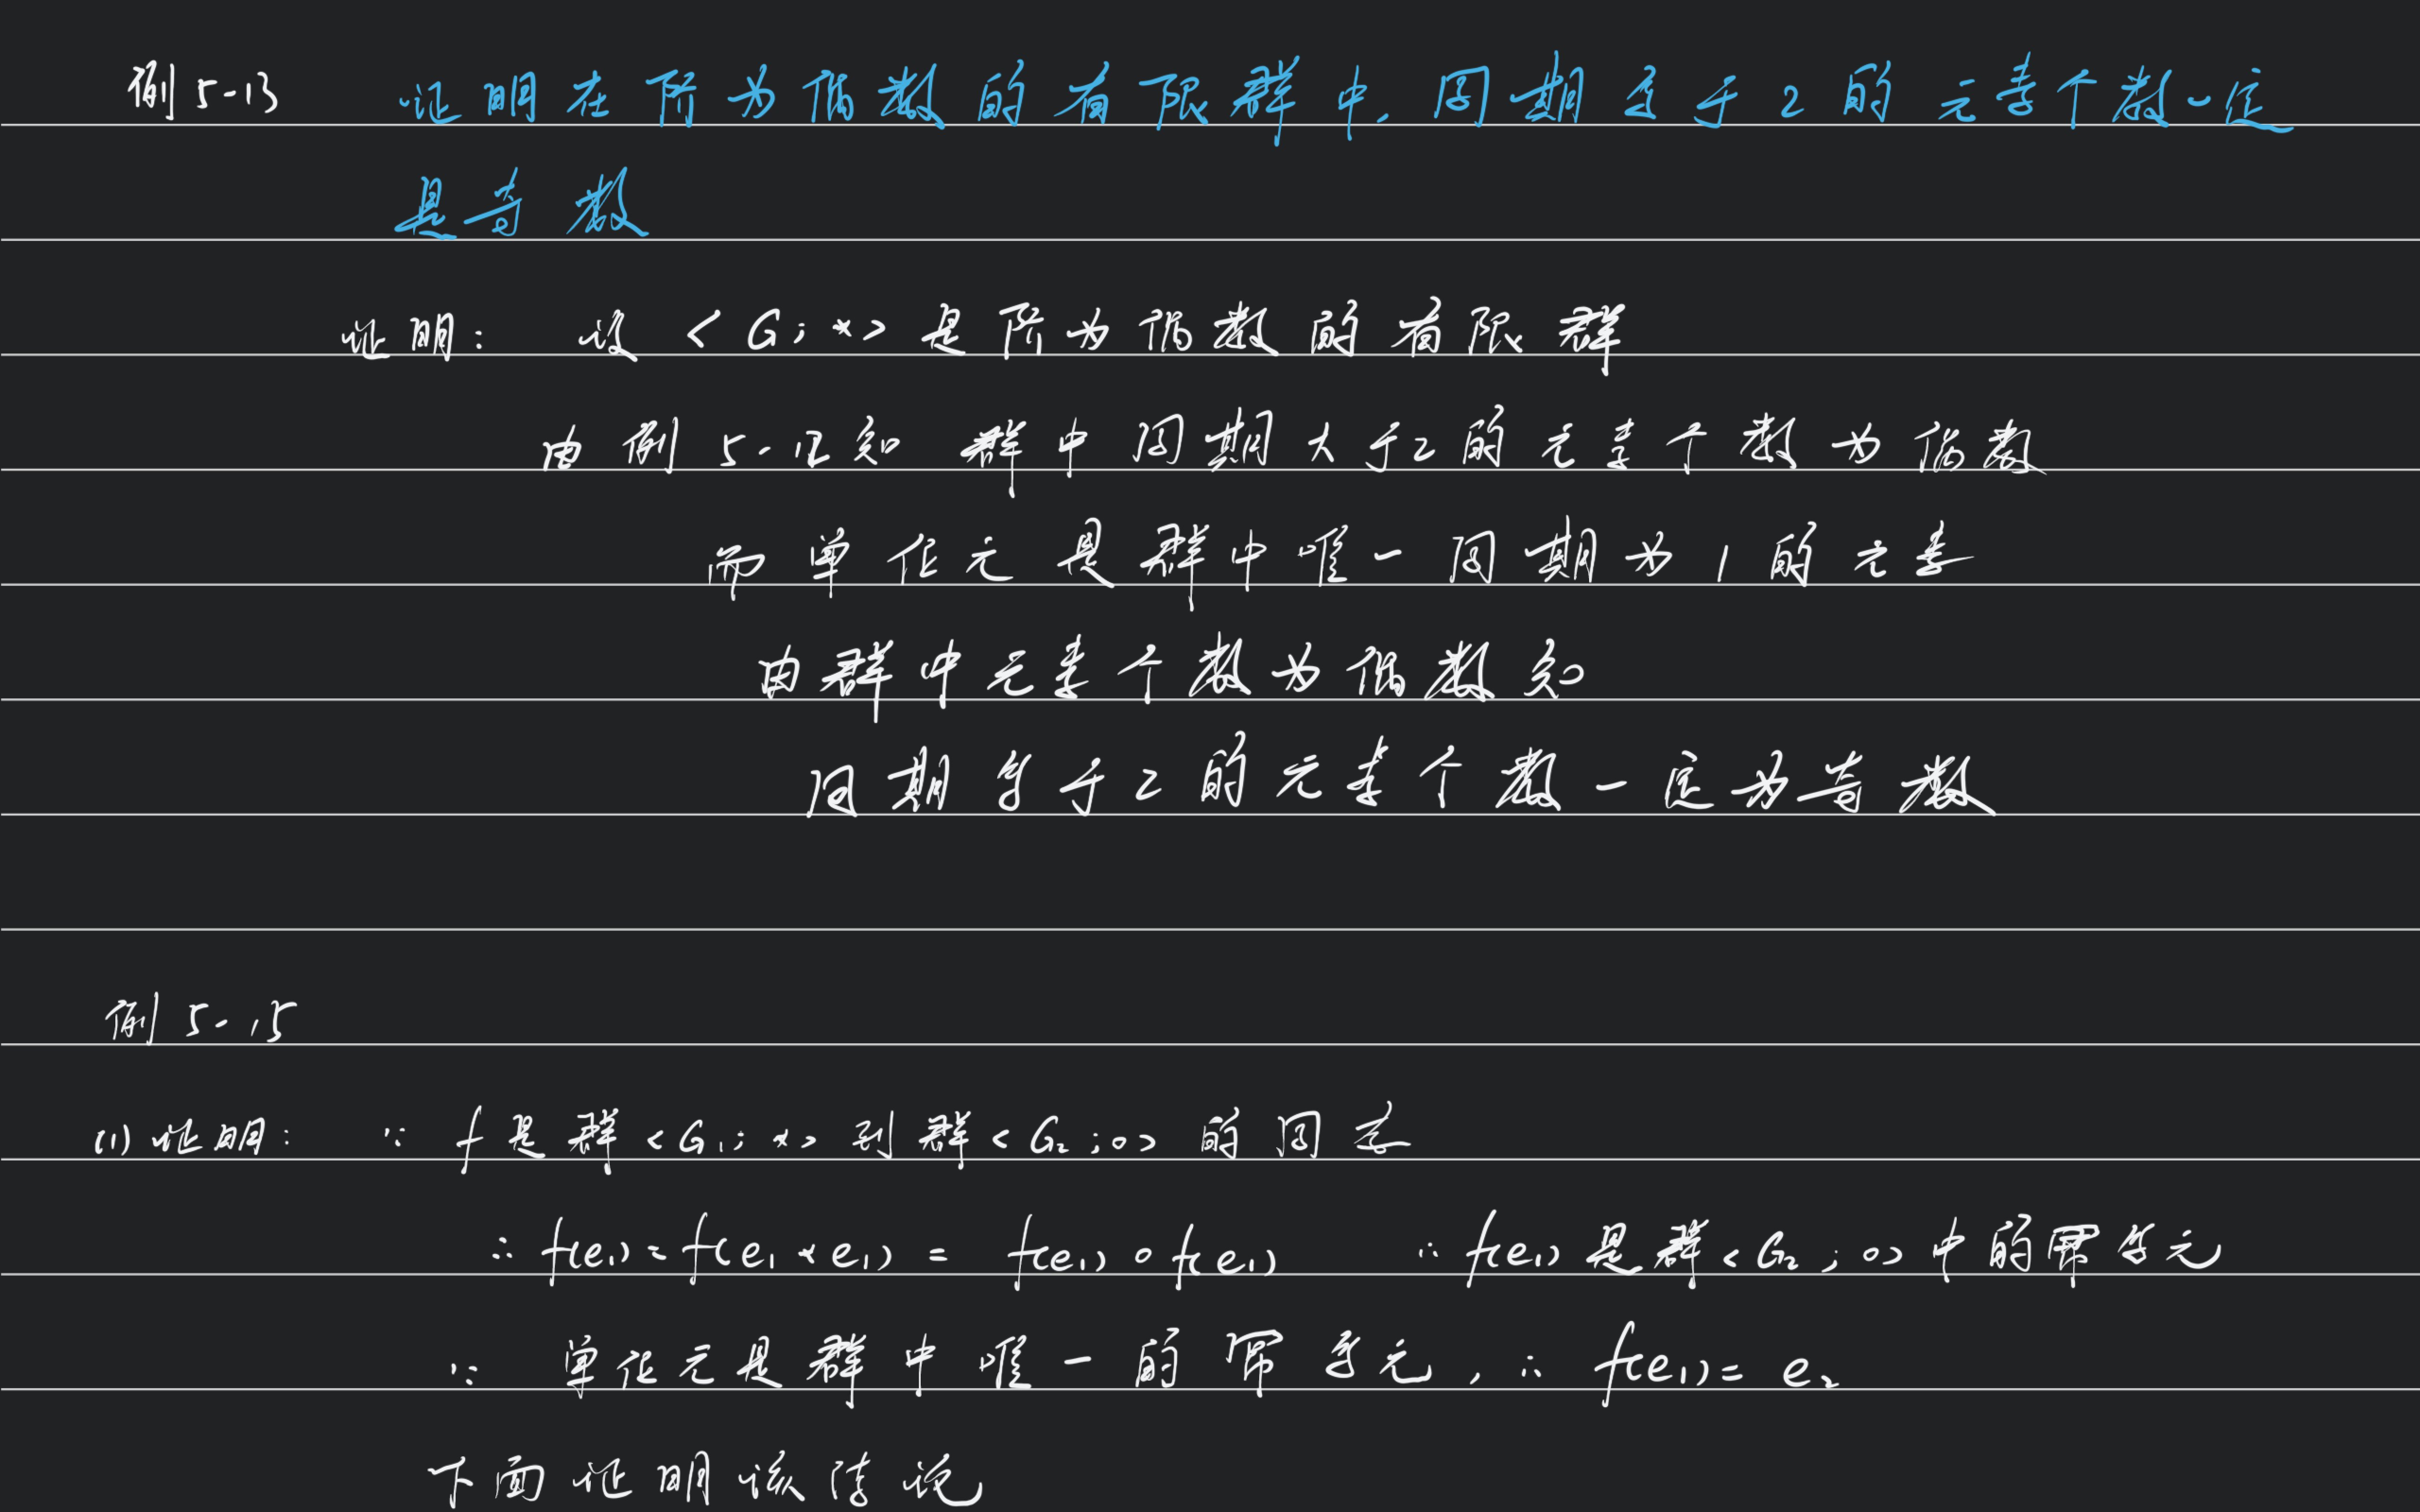 例 5-13 证明在阶为偶数的有限群中,周期等于2的元素个数一定
是奇数
证明: 设 <G;*> 是阶为偶数的有限群
由例 5-12知 群中周期大于2的元素个数为偶数
而单位元是群中唯一周期为1的元素
由群中元素个数为偶数知
周期等于2的元素个数一定为奇数
例 5-15
(1) 证明: ∵ f是群<G₁;*>到群<G₂;∘>的同态
∴ f(e₁)=f(e₁*e₁)= f(e₁)∘f(e₁) ∴ f(e₁)是群<G₂;∘>中的幂等元
∵ 单位元是群中唯一的幂等元, ∴ f(e₁)=e₂
下面证明该结论